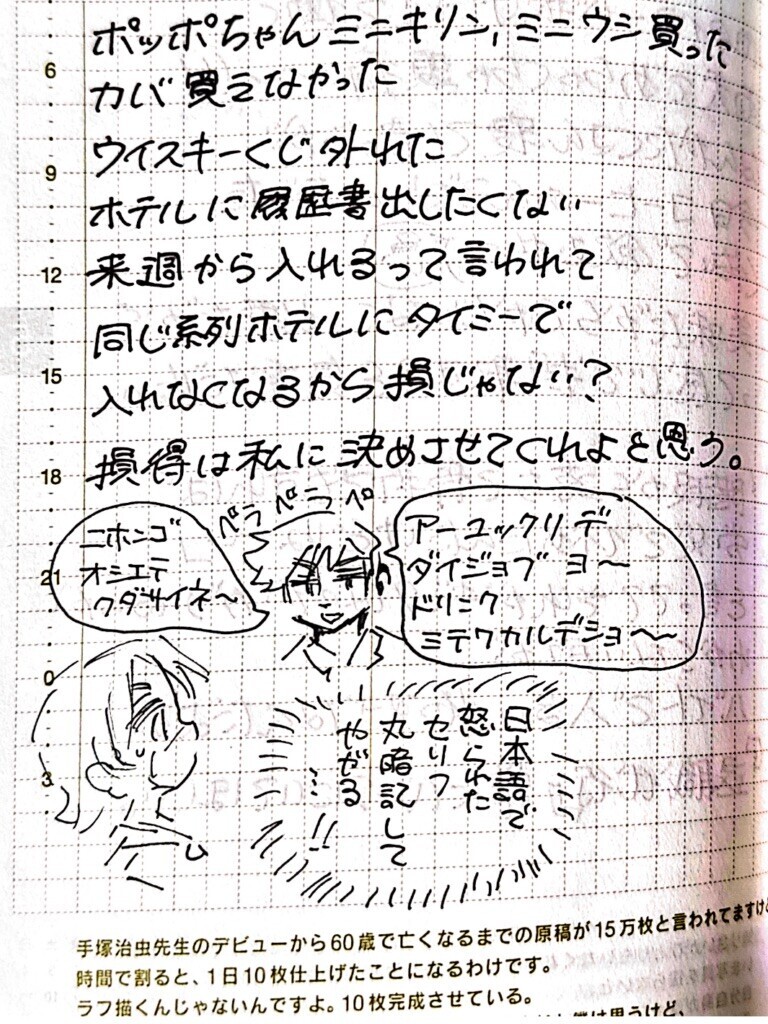 ポッポちゃんミニキリン,ミニウシ買った
6
カバ買えなかった
ウイスキーくじ外れた
9
ホテルに履歴書出したくない
12
来週から入れるって言われて
同じ系列ホテルにタイミーで
15
入れなくなるから損じゃない?
18
損得は私に決めさせてくれよと思う。
ペラペラペ
ニホンゴ
オシエテ
クダサイネ〜
アーユックリデ
ダイジョブヨ〜
ドリンク
ミテワカルデショ〜〜
21
0
3
日本語で
怒られた
セリフ
丸暗記して
やがる
……!!
手塚治虫先生のデビューから60歳で亡くなるまでの原稿が15万枚と言われてますけど
時間で割ると、1日10枚仕上げたことになるわけです。
ラフ描くんじゃないんですよ。10枚完成させている。
僕は思うけど、